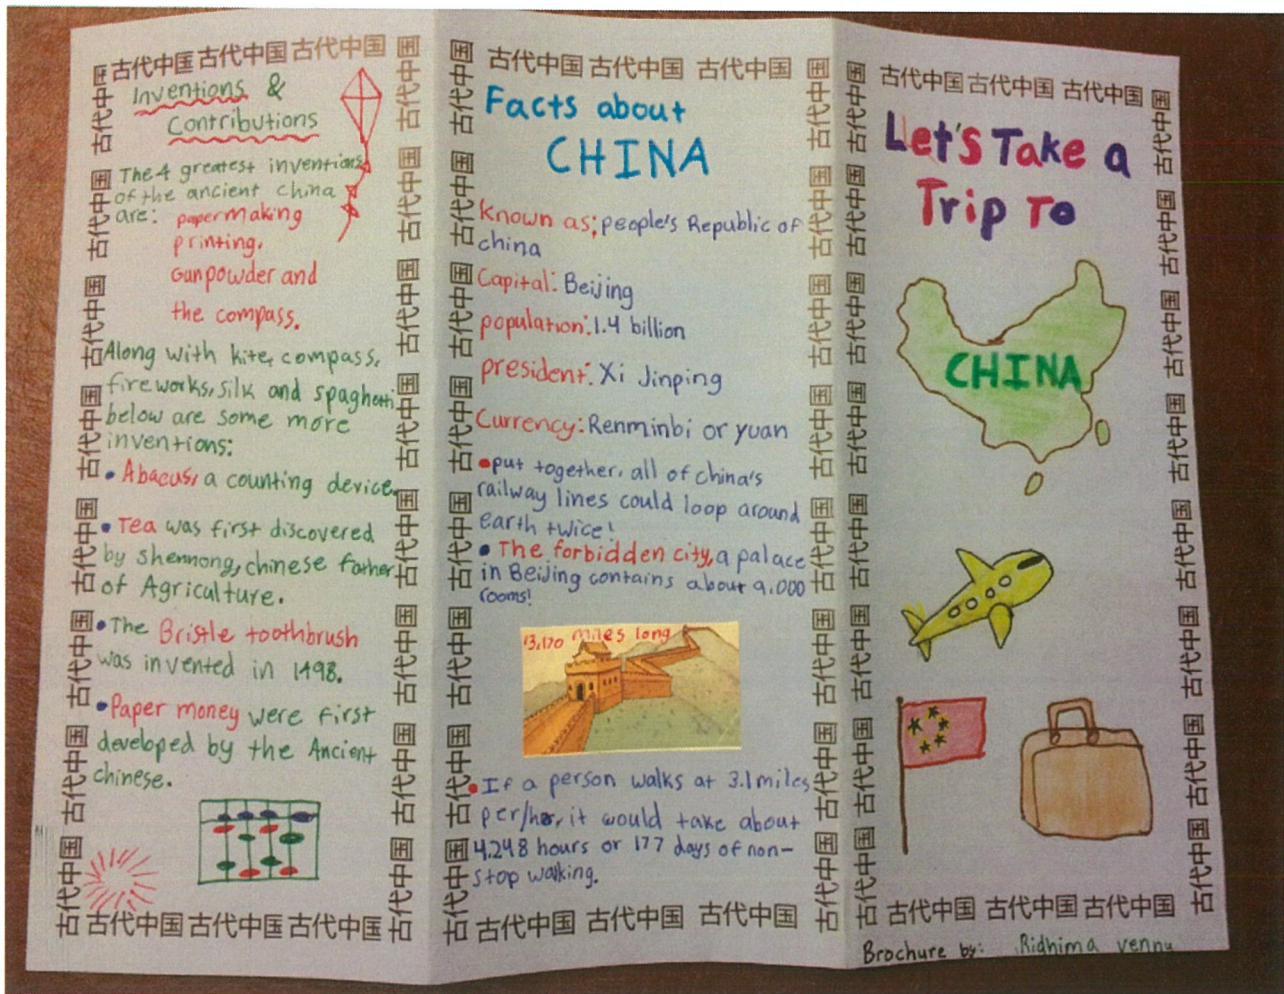 古代中国 古代中国 古代中国
Inventions &
Contributions
The 4 greatest inventions
of the ancient China
are: papermaking
printing,
Gunpowder and
the compass.
Along with kite, compass,
fireworks, silk and spaghetti
below are some more
inventions:
• Abacus, a counting device.
• Tea was first discovered
by shennong, chinese father
of Agriculture.
• The Bristle toothbrush
was invented in 1498.
• Paper money were first
developed by the Ancient
chinese.
古代中国 古代中国 古代中国
古代中国 古代中国 古代中国
Facts about
CHINA
Known as: people's Republic of
china
Capital: Beijing
population: 1.4 billion
president: Xi Jinping
Currency: Renminbi or yuan
• put together, all of china's
railway lines could loop around
earth twice!
• The forbidden city, a palace
in Beijing contains about 9,000
rooms!
13,170 miles long
• If a person walks at 3.1 miles
per/hr, it would take about
4,248 hours or 177 days of non-
stop walking.
古代中国 古代中国 古代中国
古代中国 古代中国 古代中国
Let's Take a
Trip To
CHINA
古代中国 古代中国 古代中国
Brochure by: Ridhima vennu
古代中国 古代中国 古代中国 古代中国 古代中国 古代中国 古代中国 古代中国
古代中国 古代中国 古代中国 古代中国 古代中国 古代中国 古代中国 古代中国
古代中国 古代中国 古代中国 古代中国 古代中国 古代中国 古代中国 古代中国
古代中国 古代中国 古代中国 古代中国 古代中国 古代中国 古代中国 古代中国
古代中国 古代中国 古代中国 古代中国 古代中国 古代中国 古代中国 古代中国
古代中国 古代中国 古代中国 古代中国 古代中国 古代中国 古代中国 古代中国